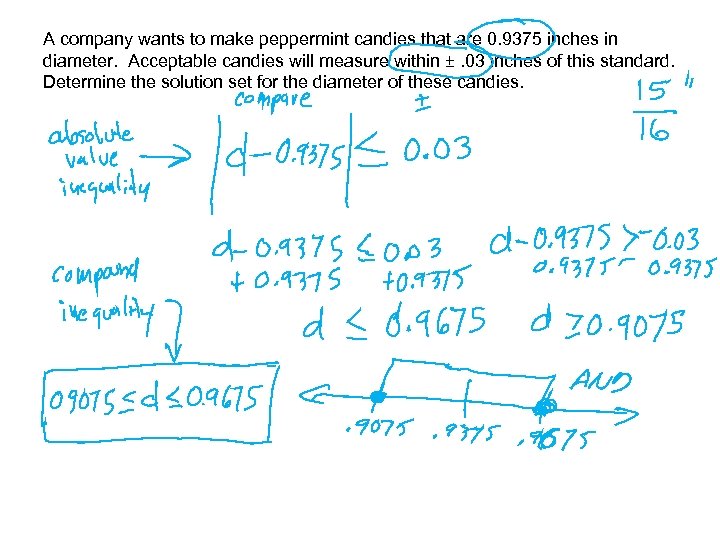 A company wants to make peppermint candies that are 0.9375 inches in
diameter. Acceptable candies will measure within ± .03 inches of this standard.
Determine the solution set for the diameter of these candies.
15"
16
compare ±
absolute
value
inequality
|d-0.9375| ≤ 0.03
d-0.9375 ≤ 0.03
+0.9375 +0.9375
d ≤ 0.9675
d-0.9375 > -0.03
0.9375 - 0.9375
d ≥ 0.9075
compound
inequality
0.9075 ≤ d ≤ 0.9675
AND
.9075 .9375 .9675